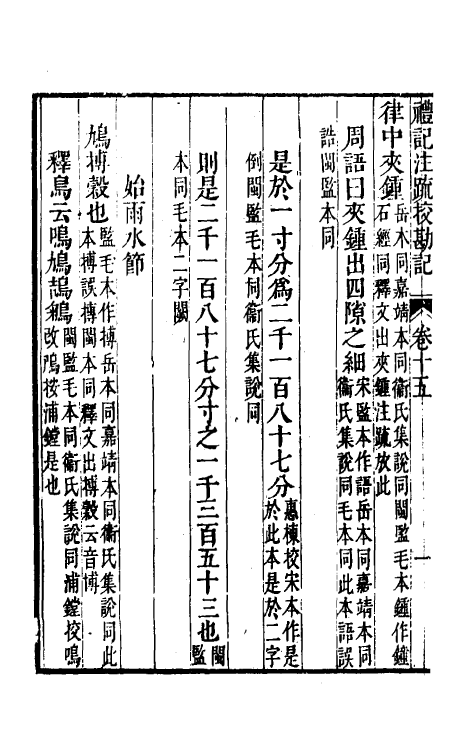 禮記注疏校勘記 卷十五 一
律中夾鍾岳本同嘉靖本同衞氏集說同閩監毛本鍾作鐘
石經同釋文出夾鍾注疏放此
周語曰夾鍾出四隙之細宋監本作語岳本同嘉靖本同
衞氏集說同毛本同此本語誤
誥閩監本同
是於一寸分爲二千一百八十七分惠棟校宋本作是
於此本是於二字
倒閩監毛本同衞氏集說同
則是二千一百八十七分寸之一千三百五十三也閩
監
本同毛本二字闕
始雨水節
鳩搏穀也監毛本作搏岳本同嘉靖本同衞氏集說同此
本搏誤榑閩本同釋文出搏穀云音博
釋鳥云鳴鳩鴶鵴閩監毛本同衞氏集說同浦鏜校鳴
改鳲按浦鏜是也